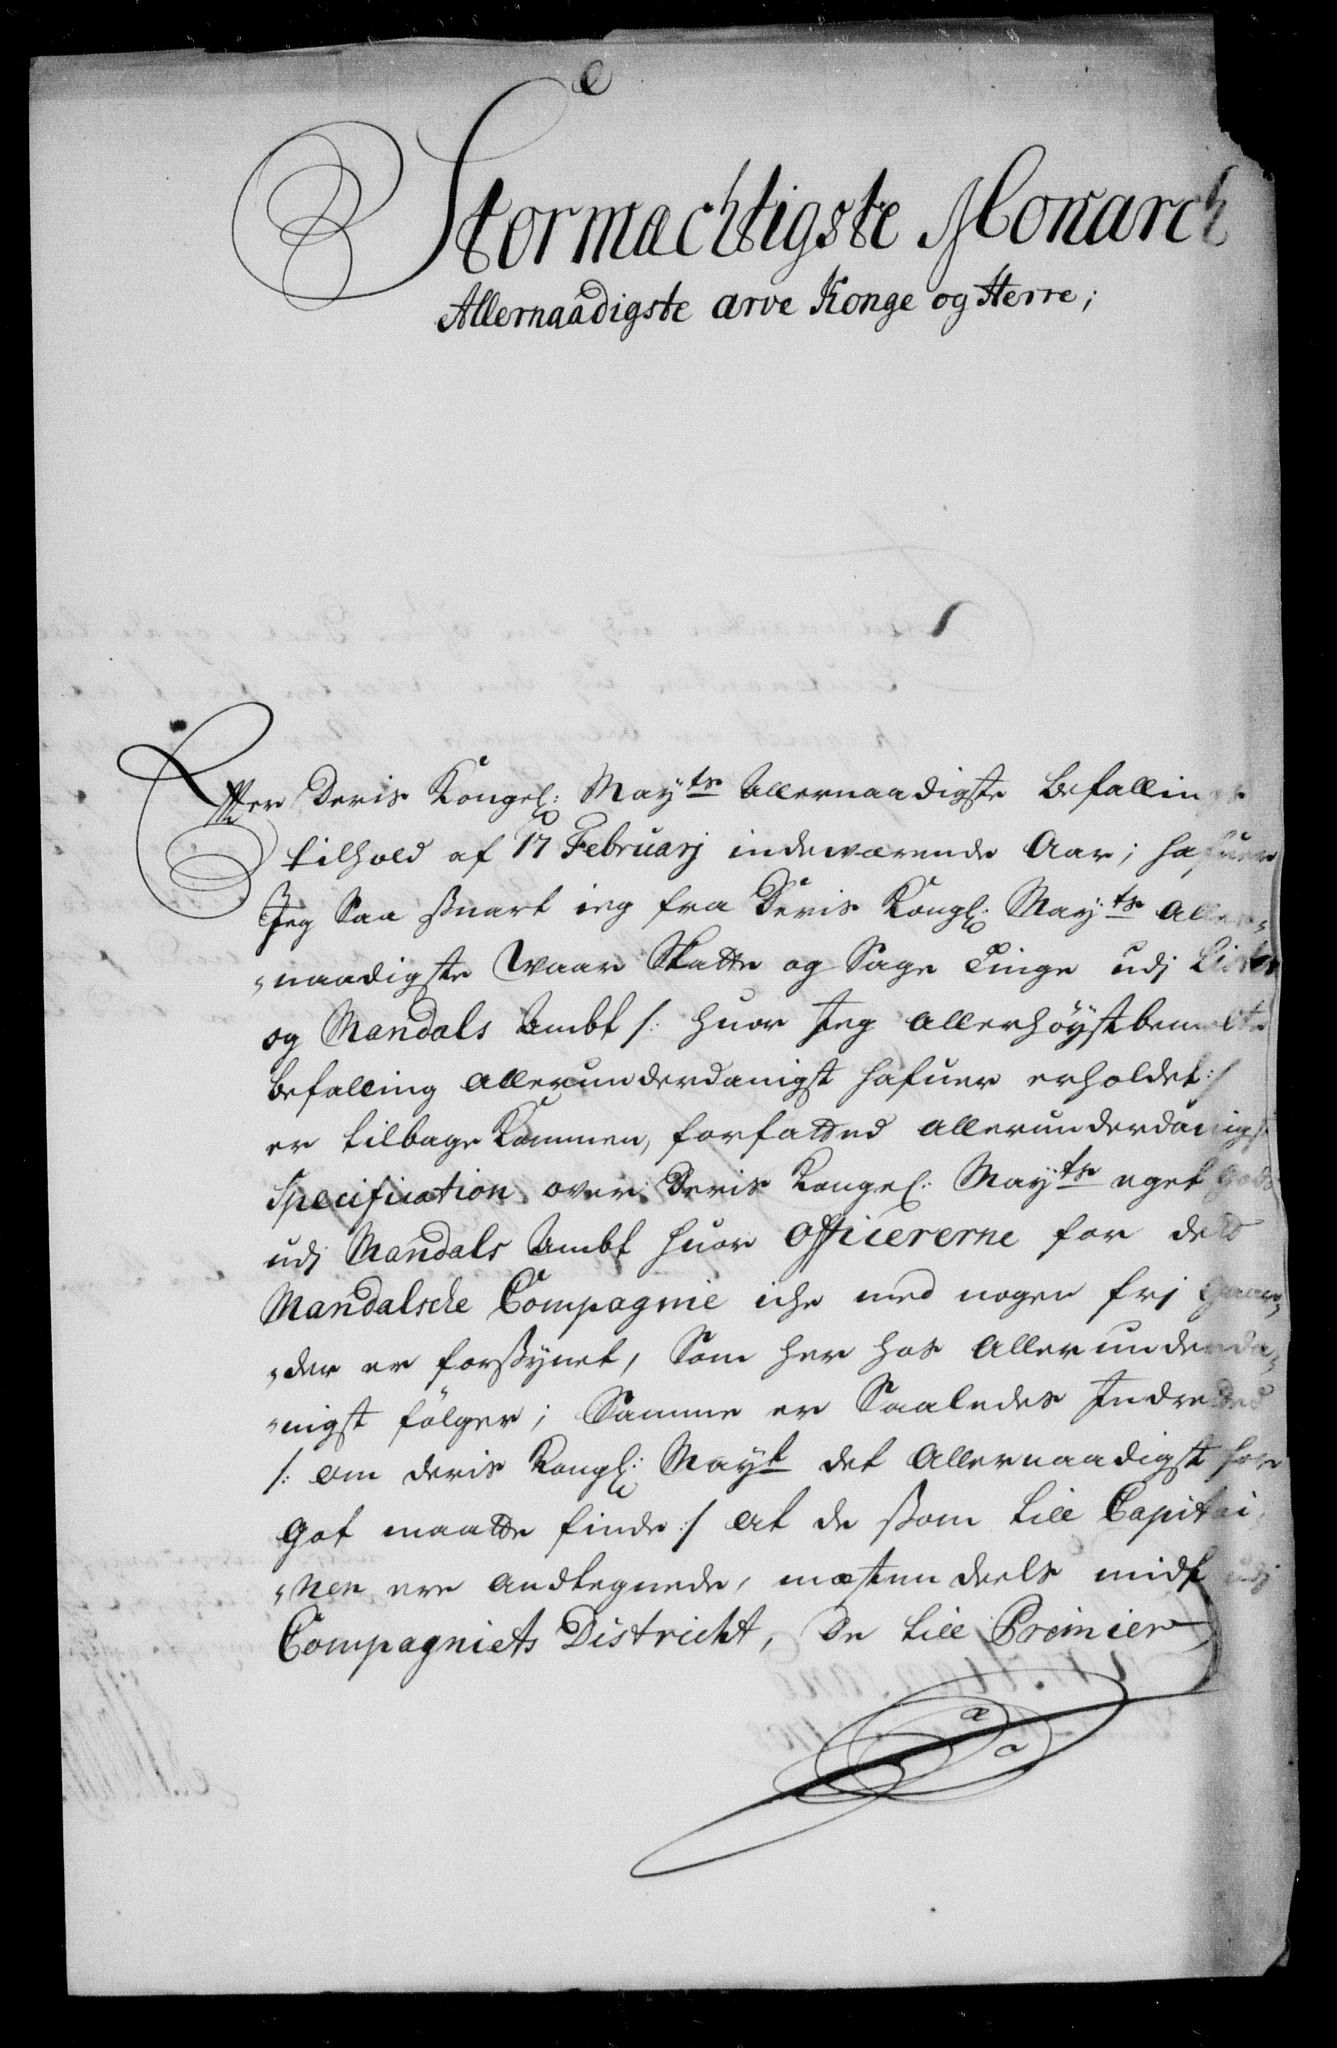 Stormæchtigste Monarch
Allernaadigste arve Konge og Herre;
Efter Deris Kongel: May:ts Allernaadigste befallings
tilhold af 17 Februarj indeværende Aar; hafuer
Jeg saa snart ieg fra Deris Kongl: May:ts Aller-
-naadigste waar Skatte og Sage Tinge udj Lister
og Mandals Ambt /: huor Jeg allerhöystbemelte
befalling allerunderdanigst hafuer erholdet :/
er tilbage kommen, forfatted allerunderdanigst
Specification over Deris Kongel: May:ts eget Gods
udj Mandals Ambt huor Officererne for deld
Mandalsche Compagnie iche med nogen frj Gaar-
-der er forsynet, som her hos allerunderda-
-nigst fölger; Samme er Saaledes Indretted
/: om deris Kongl: May:t det Allernaadigst for
got maatte finde :/ at de som till Capitai-
-nen ere andtegnede, mæsten deels midt udj
Compagniets District, De till Premier